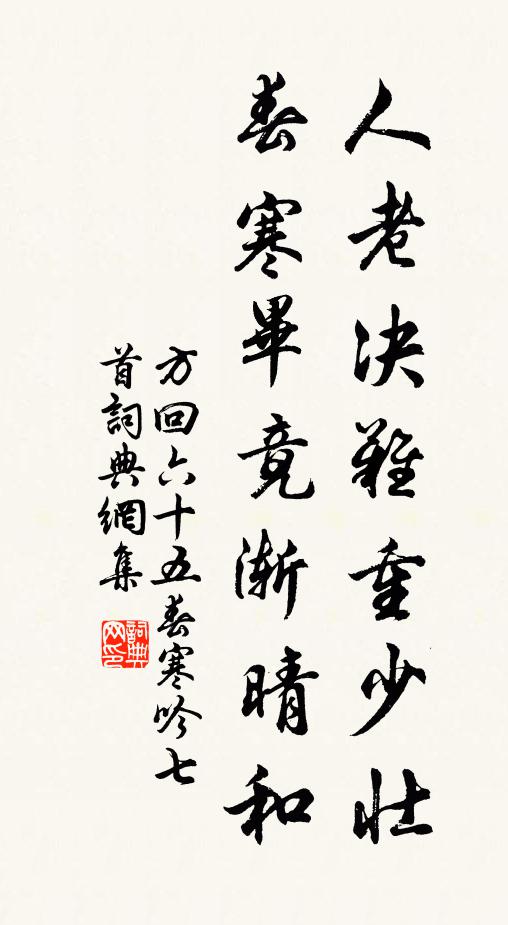 人老决難重少壯
春寒畢竟漸晴和
方回六十五春寒吟七
首詞典網集
詞典
网印